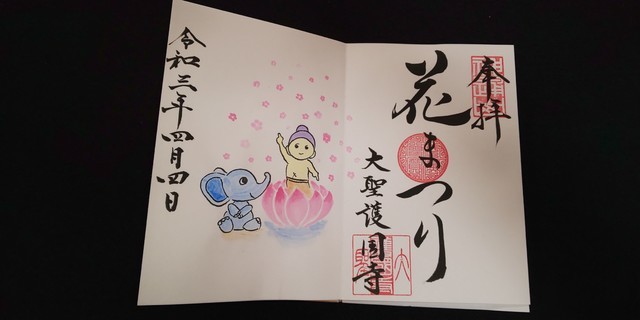 奉拝
花まつり
大聖護国寺
令和三年四月四日